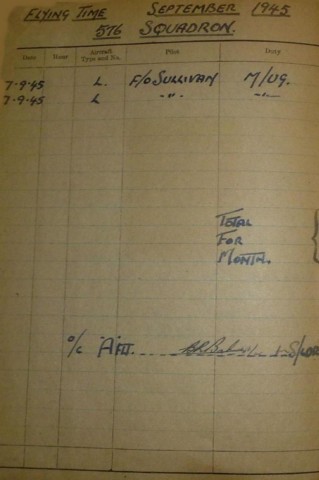 FLYING TIME SEPTEMBER 1945
576 SQUADRON.
Date Hour Aircraft Type and No. Pilot Duty
7-9-45 L. F/O SULLIVAN M/UG.
7-9-45 L -"- -"-
TOTAL
FOR
MONTH.
O/C 'A' FLT.